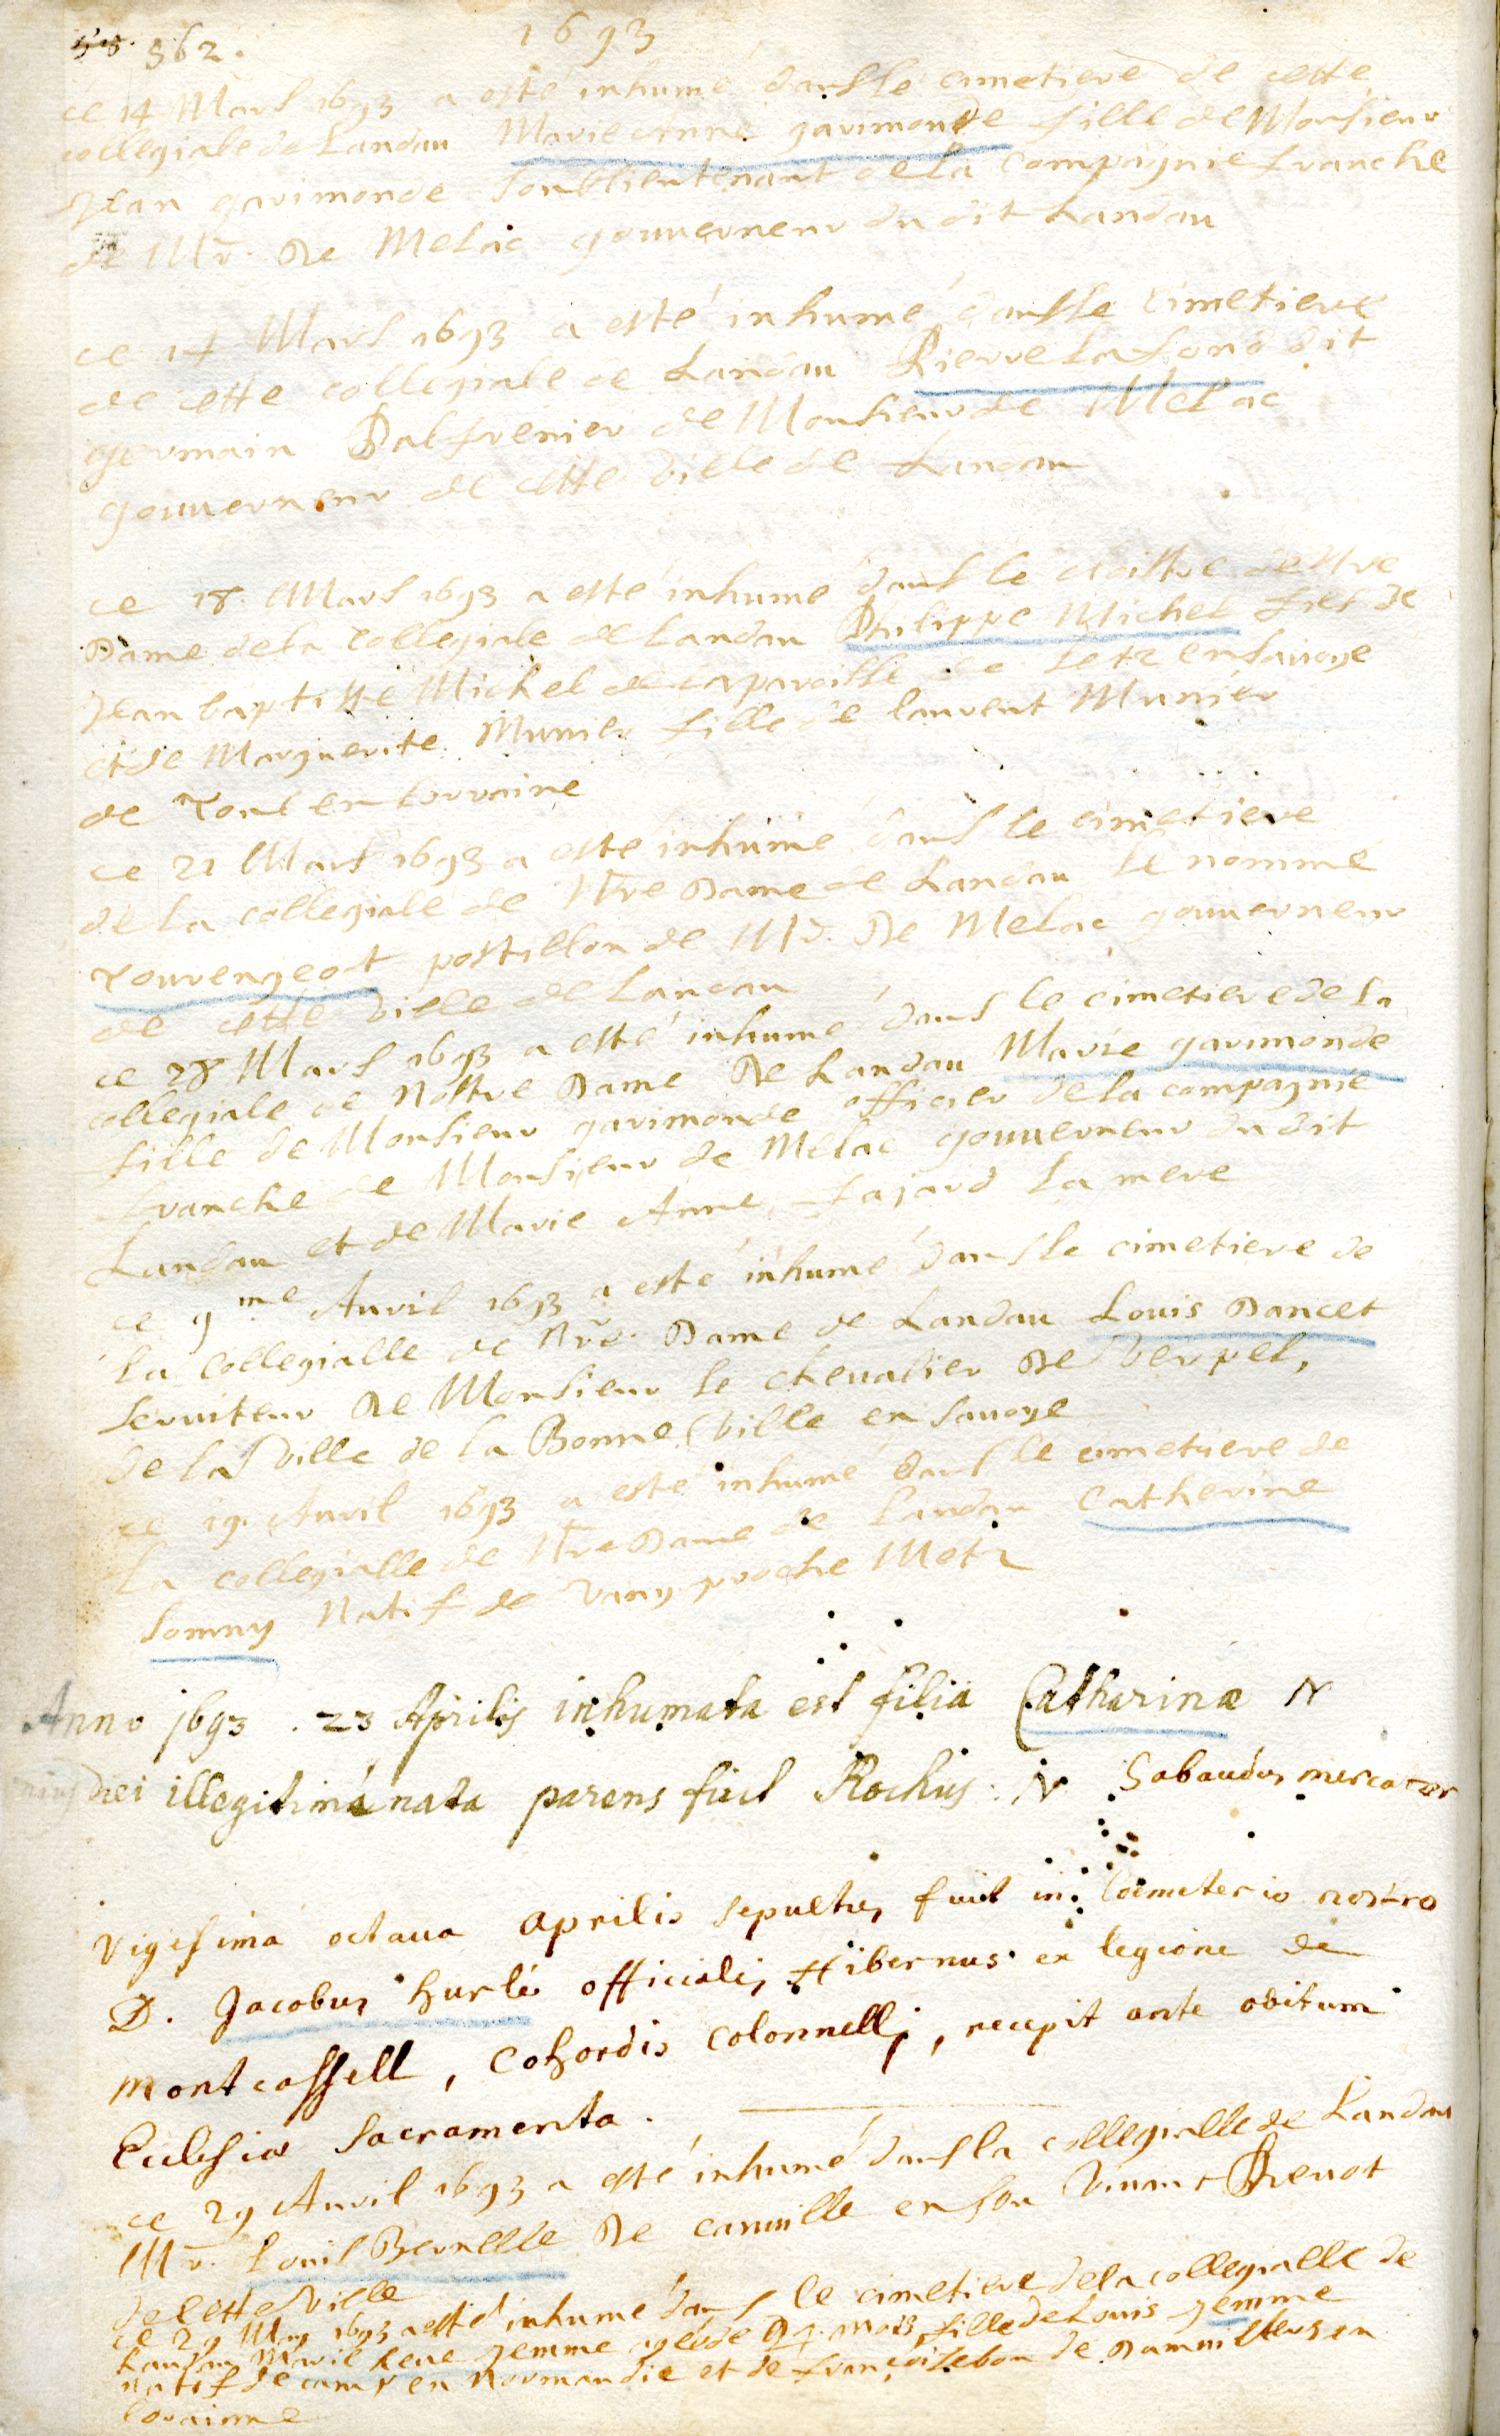 562.
1693
ce 14 Mars 1693 a esté inhumé dans le cimetiere de cette
collegiale de Landau Marie Anne garimonde fille de Monsieur
Jean garimonde soublieutenant de la Compagnie franche
de Mr. De Melac gouuerneur du dit Landau
ce 14 Mars 1693 a esté inhumé dans le cimetiere
de cette collegiale de Landau Pierre Lafond dit
germain Palfrenier de Monsieur de Melac
gouuerneur de cette ville de Landau
ce 18. Mars 1693 a esté inhumé dans le cloistre de Ntre
Dame de la Collegiale de Landau Philippe Michel fils de
Jean baptiste Michel de la paroisse de en sauoye
et de Marguerite Munier fille de laurent Munier
de Toul en Lorraine
ce 21 Mars 1693 a esté inhumé dans le cimetiere
de la collegiale de Ntre Dame de Landau le nommé
Touvengeot postillon de Mr. De Melac gouuerneur
de cette ville de Landau
ce 28 Mars 1693 a esté inhumé dans le cimetiere de la
collegiale de Nostre Dame De Landau Marie garimonde
fille de Monsieur garimonde officier de la compagnie
franche de Monsieur de Melac gouuerneur du dit
Landau et de Marie Anne fajard la mere
ce 9me Auril 1693 a esté inhumé dans le cimetiere de
la Collegialle de Nre. Dame de Landau Louis Dancet
seruiteur De Monsieur le cheualier De Verpel,
de la Ville de la Bonne Ville en Sauoye
ce 19. Auril 1693 a esté inhumé dans le cimetiere de
La collegialle de Ntre Dame de Landau Catherine
Somny Natif de Vany proche Metz
Anno 1693 . 23 Aprilis inhumata est filia Catharinæ N
diei illegitimá nata parens fuit Rochus N Sabaudus mercator
Vigesima octaua aprilis sepultus fuit in Coemeterio nostro
D. Jacobus hurlé officialis Hibernus ex legione de
montcassell, Cohordis Colonnelli, recepit ante obitum
Ecclesiæ Sacramenta.
ce 29 Auril 1693 a esté inhumé dans la collegialle de Landau
Mr. Louis Bernelle De canuille en son Viuant Preuot
de cette Ville
ce 29 May 1693 a esté inhumé dans le cimetiere de la collegialle de
Landau Marie gemme agée de mois fille de Louis gemme
natif de en Normandie et de françoise bon de Damuillers en
Lorainne